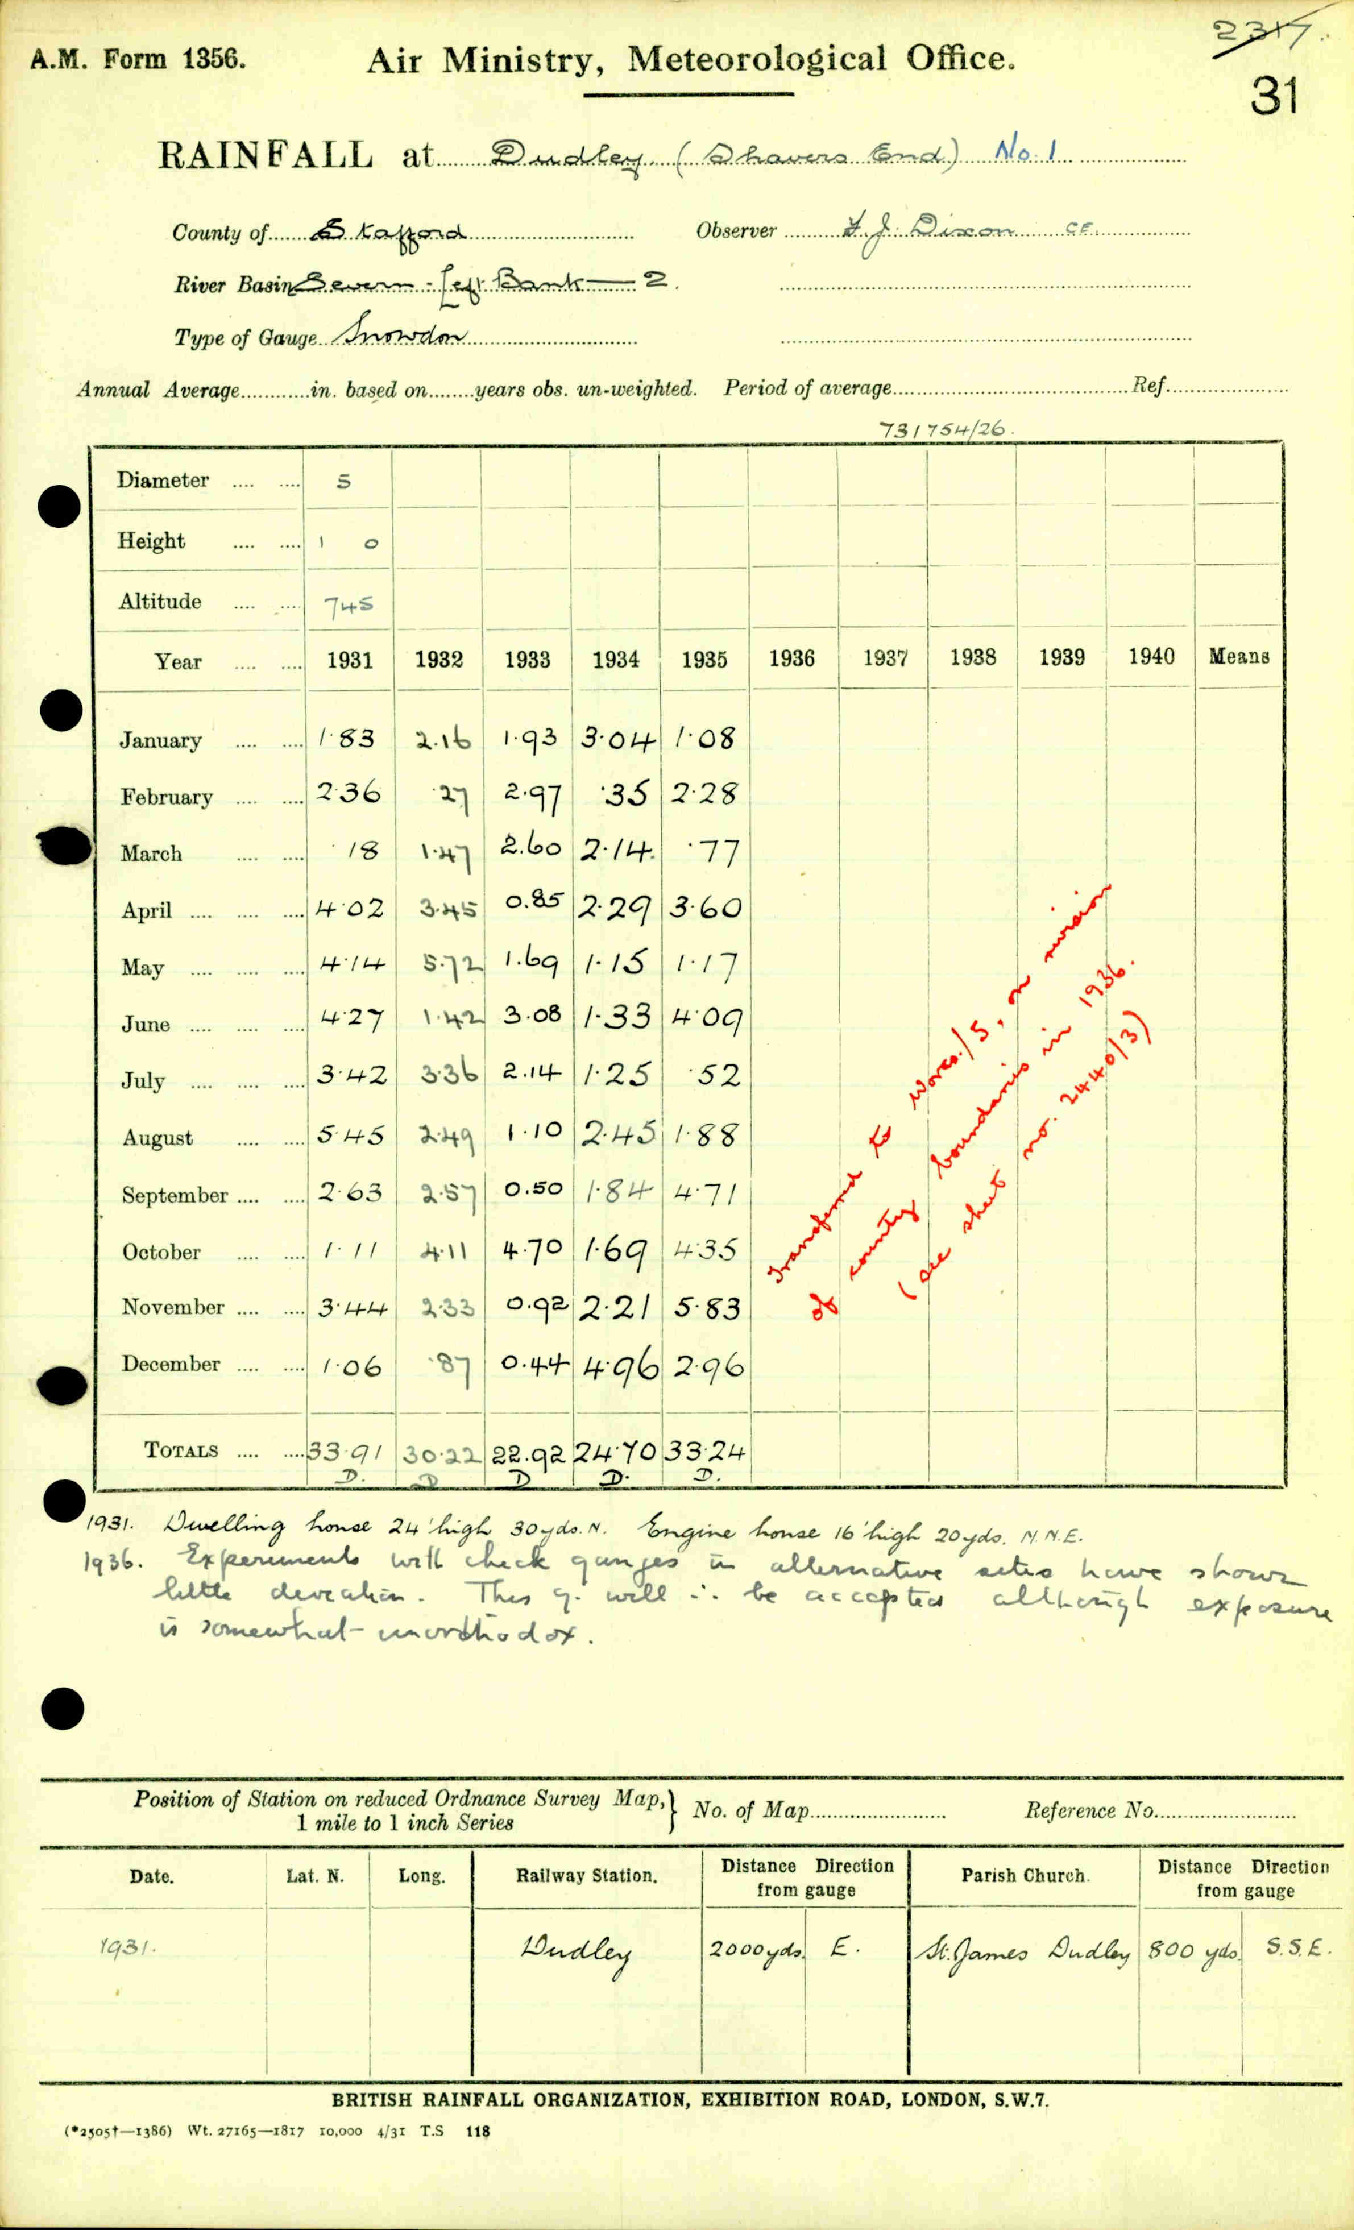 2317.
A.M. Form 1356. Air Ministry, Meteorological Office.
31
RAINFALL at Dudley (Shavers End) No. 1
County of Stafford Observer F. J. Dixon C.E.
River Basin Severn - Left Bank — 2.
Type of Gauge Snowdon
Annual Average in. based on years obs. un-weighted. Period of average Ref.
731754/26.
Diameter .... .... 5
Height .... .... 1 0
Altitude .... .... 745
Year .... .... 1931 1932 1933 1934 1935 1936 1937 1938 1939 1940 Means
January .... .... 1.83 2.16 1.93 3.04 1.08
February .... .... 2.36 .27 2.97 .35 2.28
March .... .... .18 1.47 2.60 2.14 .77
April .... .... .... 4.02 3.45 0.85 2.29 3.60
May .... .... .... 4.14 5.72 1.69 1.15 1.17
June .... .... .... 4.27 1.42 3.08 1.33 4.09
July .... .... .... 3.42 3.36 2.14 1.25 .52
August .... .... 5.45 2.49 1.10 2.45 1.88
September .... .... 2.63 2.57 0.50 1.84 4.71
October .... .... 1.11 4.11 4.70 1.69 4.35
November .... .... 3.44 2.33 0.92 2.21 5.83
December .... .... 1.06 .87 0.44 4.96 2.96
TOTALS .... .... 33.91 30.22 22.92 24.70 33.24
D. D D D. D.
Transferred to Worcs./5, on revision
of county boundaries in 1936.
(see sheet no. 2440/3)
1931. Dwelling house 24' high 30yds. N. Engine house 16' high 20yds. N.N.E.
1936. Experiments with check gauges in alternative sites have shown
little deviation. This g. will ∴ be accepted although exposure
is somewhat unorthodox.
Position of Station on reduced Ordnance Survey Map,} No. of Map Reference No.
1 mile to 1 inch Series
Date. Lat. N. Long. Railway Station. Distance Direction from gauge Parish Church. Distance Direction from gauge
1931. Dudley 2000yds. E. St. James Dudley 800 yds. S.S.E.
BRITISH RAINFALL ORGANIZATION, EXHIBITION ROAD, LONDON, S.W.7.
(*2505†—1386) Wt. 27165—1817 10,000 4/31 T.S 118